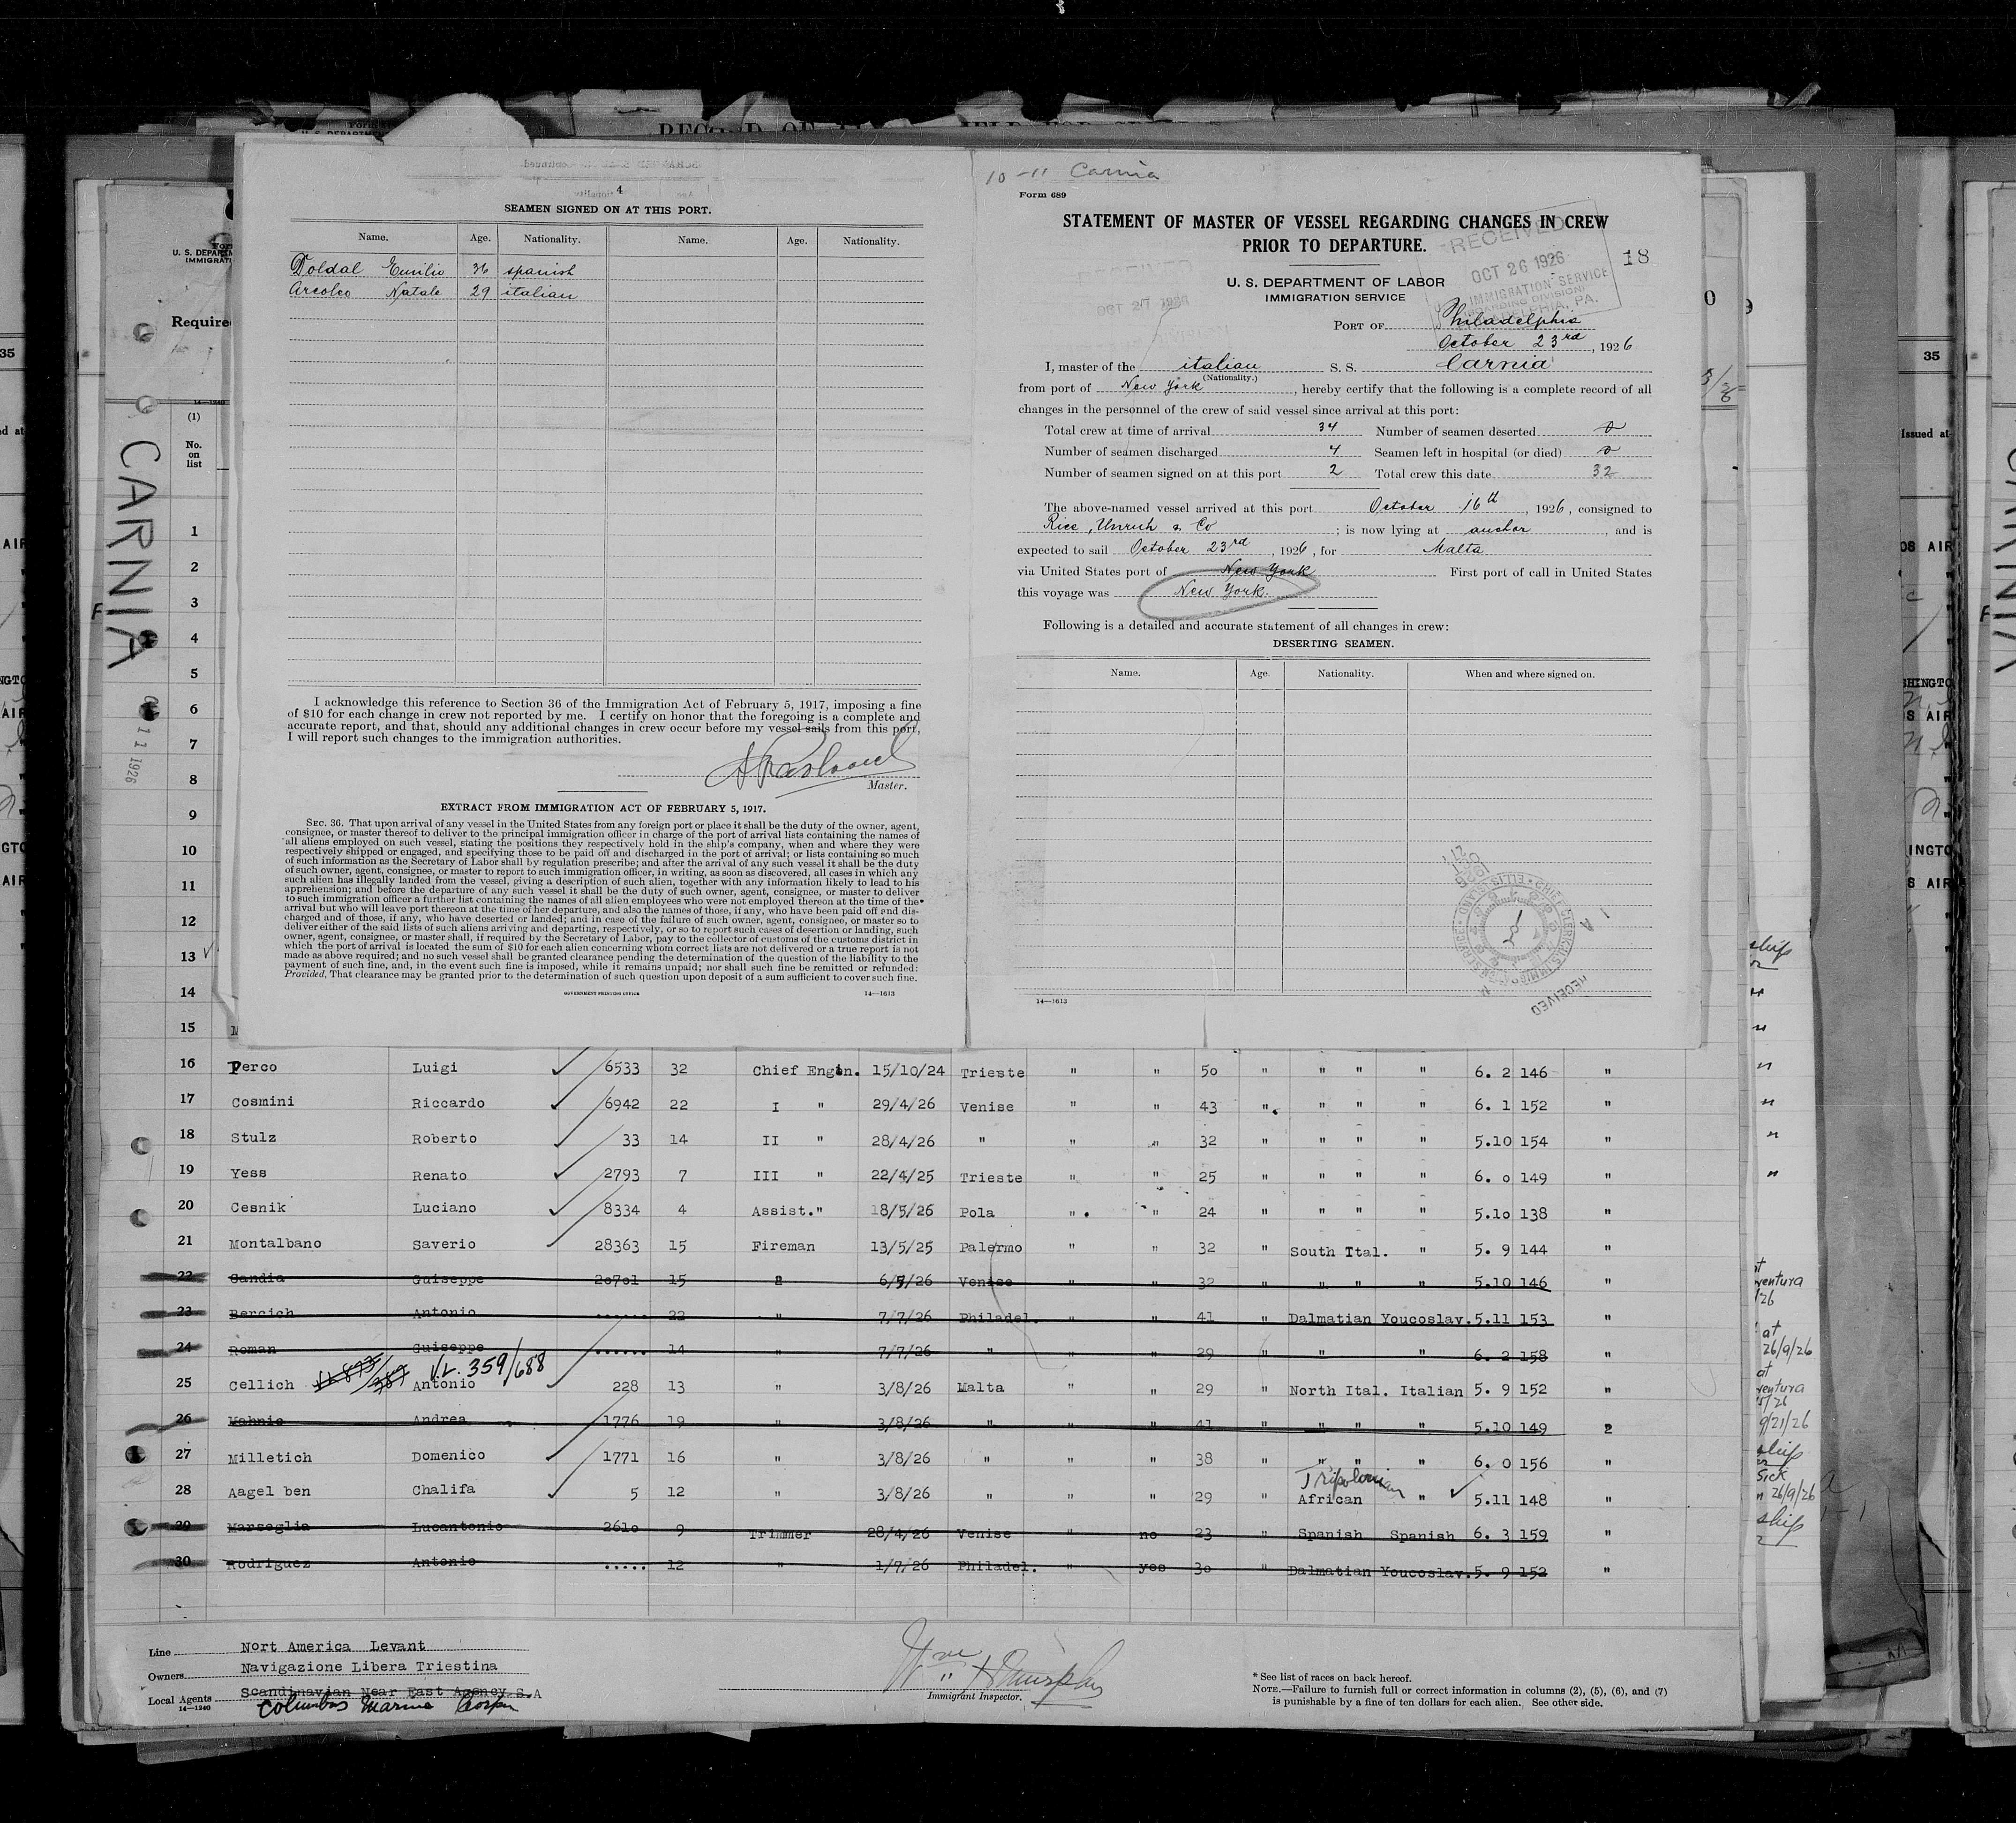 4
SEAMEN SIGNED ON AT THIS PORT.
Name. Age. Nationality. Name. Age. Nationality.
Doldal Emilio 36 spanish
Arcoleo Natale 29 italian
I acknowledge this reference to Section 36 of the Immigration Act of February 5, 1917, imposing a fine
of $10 for each change in crew not reported by me. I certify on honor that the foregoing is a complete and
accurate report, and that, should any additional changes in crew occur before my vessel sails from this port,
I will report such changes to the immigration authorities.
Master.
EXTRACT FROM IMMIGRATION ACT OF FEBRUARY 5, 1917.
SEC. 36. That upon arrival of any vessel in the United States from any foreign port or place it shall be the duty of the owner, agent,
consignee, or master thereof to deliver to the principal immigration officer in charge of the port of arrival lists containing the names of
all aliens employed on such vessel, stating the positions they respectively hold in the ship's company, when and where they were
respectively shipped or engaged, and specifying those to be paid off and discharged in the port of arrival; or lists containing so much
of such information as the Secretary of Labor shall by regulation prescribe; and after the arrival of any such vessel it shall be the duty
of such owner, agent, consignee, or master to report to such immigration officer, in writing, as soon as discovered, all cases in which any
such alien has illegally landed from the vessel, giving a description of such alien, together with any information likely to lead to his
apprehension; and before the departure of any such vessel it shall be the duty of such owner, agent, consignee, or master to deliver
to such immigration officer a further list containing the names of all alien employees who were not employed thereon at the time of the
arrival but who will leave port thereon at the time of her departure, and also the names of those, if any, who have been paid off and dis-
charged and of those, if any, who have deserted or landed; and in case of the failure of such owner, agent, consignee, or master so to
deliver either of the said lists of such aliens arriving and departing, respectively, or so to report such cases of desertion or landing, such
owner, agent, consignee, or master shall, if required by the Secretary of Labor, pay to the collector of customs of the customs district in
which the port of arrival is located the sum of $10 for each alien concerning whom correct lists are not delivered or a true report is not
made as above required; and no such vessel shall be granted clearance pending the determination of the question of the liability to the
payment of such fine, and, in the event such fine is imposed, while it remains unpaid; nor shall such fine be remitted or refunded:
Provided, That clearance may be granted prior to the determination of such question upon deposit of a sum sufficient to cover such fine.
GOVERNMENT PRINTING OFFICE 14—1613
10-11 Carnia
Form 689
STATEMENT OF MASTER OF VESSEL REGARDING CHANGES IN CREW
PRIOR TO DEPARTURE.
RECEIVED
OCT 26 1926
IMMIGRATION SERVICE
PHILADELPHIA, PA.
18
OCT 27 1926
U. S. DEPARTMENT OF LABOR
IMMIGRATION SERVICE
PORT OF Philadelphia
October 23rd, 1926
I, master of the italian S. S. Carnia
(Nationality.)
from port of New York, hereby certify that the following is a complete record of all
changes in the personnel of the crew of said vessel since arrival at this port:
Total crew at time of arrival 34 Number of seamen deserted 0
Number of seamen discharged 4 Seamen left in hospital (or died) 0
Number of seamen signed on at this port 2 Total crew this date 32
The above-named vessel arrived at this port October 16th, 1926, consigned to
Rice, Unruh & Co; is now lying at anchor, and is
expected to sail October 23rd, 1926, for Malta
via United States port of New York First port of call in United States
this voyage was New York.
Following is a detailed and accurate statement of all changes in crew:
DESERTING SEAMEN.
Name. Age. Nationality. When and where signed on.
14—1613
RECEIVED
CARNIA
1926
U. S. DEPARTM
IMMIGRATI
Require
14—1240
(1)
No.
on
list
1
2
3
4
5
6
7
8
9
10
11
12
13
14
15
16 Perco Luigi 6533 32 Chief Engin. 15/10/24 Trieste " " 50 " " " " 6. 2 146 "
17 Cosmini Riccardo 6942 22 I " 29/4/26 Venise " " 43 " " " " 6. 1 152 "
18 Stulz Roberto 33 14 II " 28/4/26 " " " 32 " " " " 5.10 154 "
19 Yess Renato 2793 7 III " 22/4/25 Trieste " " 25 " " " " 6. 0 149 "
20 Cesnik Luciano 8334 4 Assist." 18/5/26 Pola " " 24 " " " " 5.10 138 "
21 Montalbano Saverio 28363 15 Fireman 13/5/25 Palermo " " 32 " South Ital. " 5. 9 144 "
22 Candia Guiseppe 20701 15 " 6/5/26 Venise " " 32 " " " " 5.10 146 "
23 Bercich Antonio ...... 22 " 7/7/26 Philadel. " " 41 " Dalmatian Youcoslav. 5.11 153 "
24 Roman Guiseppe ...... 14 " 7/7/26 " " " 29 " " " 6. 2 158 "
V.L. 359/688
25 Cellich Antonio 228 13 " 3/8/26 Malta " " 29 " North Ital. Italian 5. 9 152 "
26 Mahnic Andrea 1776 19 " 3/8/26 " " " 41 " " " " 5.10 149 "
27 Milletich Domenico 1771 16 " 3/8/26 " " " 38 " " " " 6. 0 156 "
Tripolonian
28 Aagel ben Chalifa 5 12 " 3/8/26 " " " 29 " African " 5.11 148 "
29 Marseglia Lucantonio 2610 9 Trimmer 28/4/26 Venise " no 23 " Spanish Spanish 6. 3 159
30 Rodriguez Antonio ..... 12 " 1/7/26 Philadel. " yes 30 " Dalmatian Youcoslav. 5. 9 152 "
Line Nort America Levant
Owners Navigazione Libera Triestina
Local Agents Scandinavian Near East Agency.S.A
14—1240
Columbus Marine
Immigrant Inspector.
* See list of races on back hereof.
NOTE.—Failure to furnish full or correct information in columns (2), (5), (6), and (7)
is punishable by a fine of ten dollars for each alien. See other side.
35